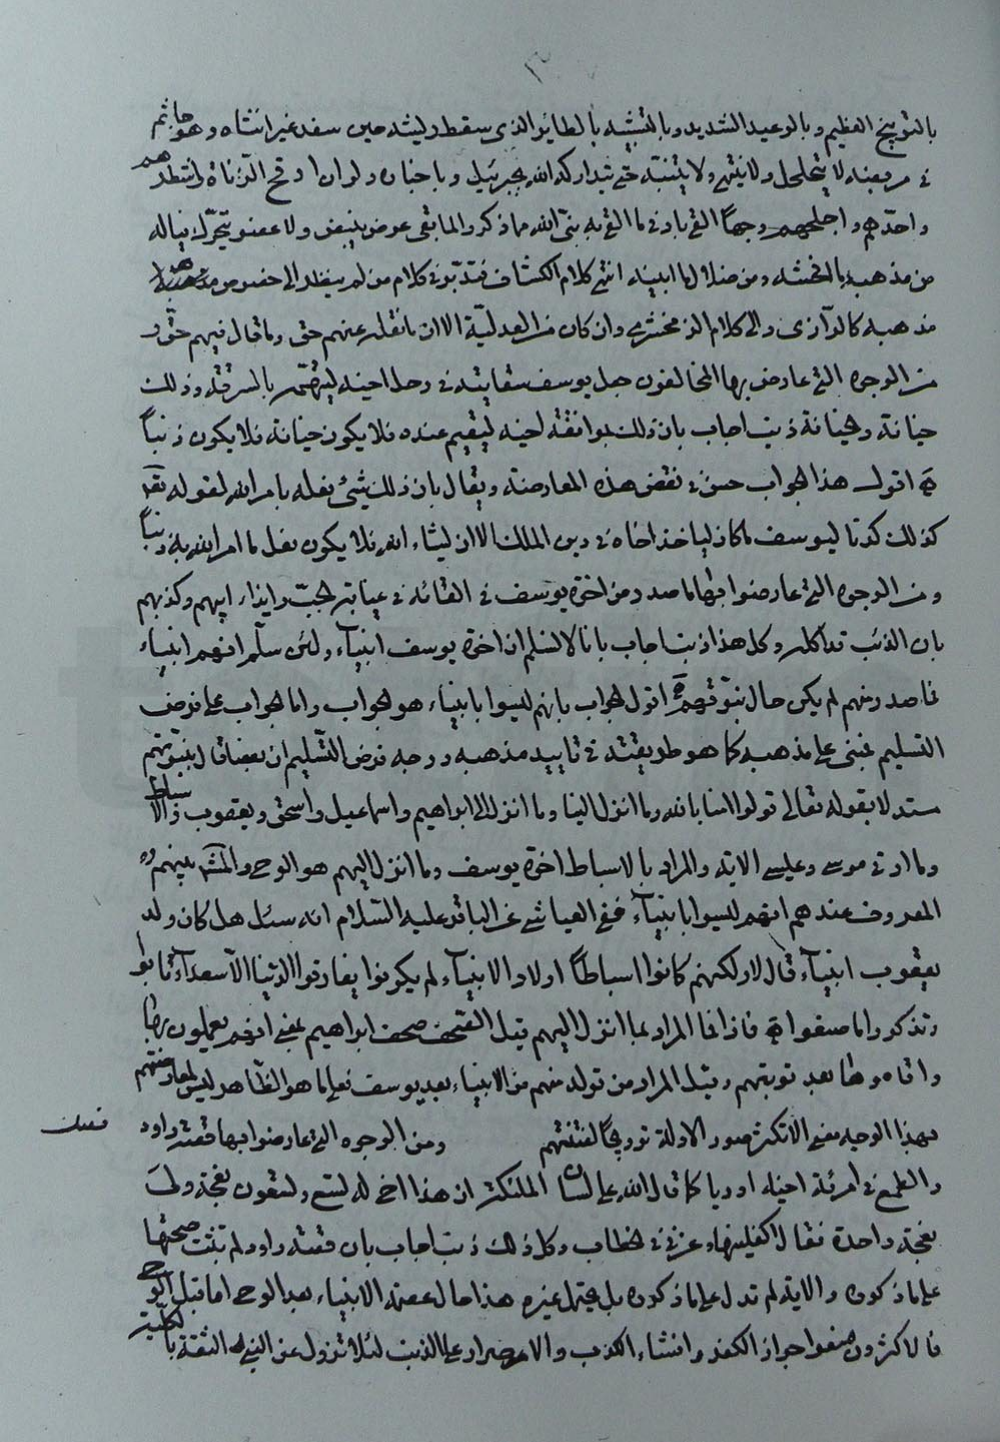 بالتوبيخ العظيم وبالوعيد الشديد وبالتشبيه بالطائر الذي سقط ريشه حين سفد غير انثاه وهو جاثم
في مربضه لا يتحلحل ولا ينتهي ولا يتنبه حتى يتداركه الله بجبرئيل وباجباره ولو ان اوقح الزناة واشطرهم
واحدهم واجلحهم وجها لقي بادنى ما لقي به نبي الله مما ذكروا لما بقي عرض ينبض ولا عضو يتحرك فياله
من مذهب ما افحشه ومن ضلال ما ابينه انتهى كلام الكشاف فتدبر في كلام من لم ينظر الى خصوص
مذهبه كالرازي والى كلام الزمخشري وان كان من العدلية الا ان ما نقله عنهم حق وما قال فيهم حق و
من الوجوه التي عارض بها المخالفون جعل يوسف سقايته في رحل اخيه ليتهمه بالسرقة وذلك
خيانة والخيانة ذنب اجاب بان ذلك بموافقة اخيه ليقيم عنده فلا يكون خيانة فلا يكون ذنبا
اقول هذا الجواب حسن في نقض هذه المعارضة ويقال بان ذلك شيئ فعله بامر الله لقوله تعه
كذلك كدنا ليوسف ما كان ليأخذ اخاه في دين الملك الا ان يشاء الله فلا يكون فعل ما امر الله به ذنبا
ومن الوجوه التي عارضوا بها ما صدر من اخوة يوسف في القائه في غيابة الجب وايذاء ابيهم وكذبهم
بان الذئب قد اكله وكل هذا ذنب اجاب بانا لا نسلم ان اخوة يوسف انبياء ولئن سلم انهم انبياء
فما صدر منهم لم يكن حال نبوتهم اقول الجواب بانهم ليسوا بانبياء هو الجواب واما الجواب على فرض
التسليم فمبني على مذهبه كما هو طريقته في تاييد مذهبه ووجه فرض التسليم ان بعضا قال بنبوتهم
مستدلا بقوله تعالى قولوا امنا بالله وما انزل الينا وما انزل الى ابراهيم واسماعيل واسحق ويعقوب والاسباط
وما اوتي موسى وعيسى الاية والمراد بالاسباط اخوة يوسف وما انزل اليهم هو الوحي والمشهور بينهم و
المعروف عندهم انهم ليسوا بانبياء ففي العياشي عن الباقر عليه السلام انه سئل هل كان ولد
يعقوب انبياء قال لا ولكنهم كانوا اسباطا اولاد الانبياء لم يكونوا يفارقوا الدنيا الا سعداء تابوا
وتذكروا ما صنعوا فاذا فالمراد بما انزل اليهم قيل الصحف صحف ابراهيم يعني انهم يعملون بها
واقاموها بعد توبتهم وقيل المراد من تولد منهم من الانبياء بعد يوسف فعلى ما هو الظاهر ليس لمعارضتهم
بهذا الوجه معنى الا تكثر صور الادلة ترويجا لفتنتهم ومن الوجوه التي عارضوا بها قصة داود
والطمع في امرئة اخيه اوريا كما قال الله على لسان الملكين ان هذا اخي له تسع وتسعون نعجة ولي
نعجة واحدة فقال اكفلنيها وعزني في الخطاب وكل ذلك ذنب اجاب بان قصة داود لم تثبت صحتها
على ما ذكروه والاية لم تدل على ما ذكروه بل يحتمل غيره هذا حال عصمة الانبياء بعد الوحي اما قبل الوحي
فالاكثرون منعوا جواز الكفر وافشاء الكذب والاصرار على الذنب لئلا تزول عن النبي الثقة بالكلية